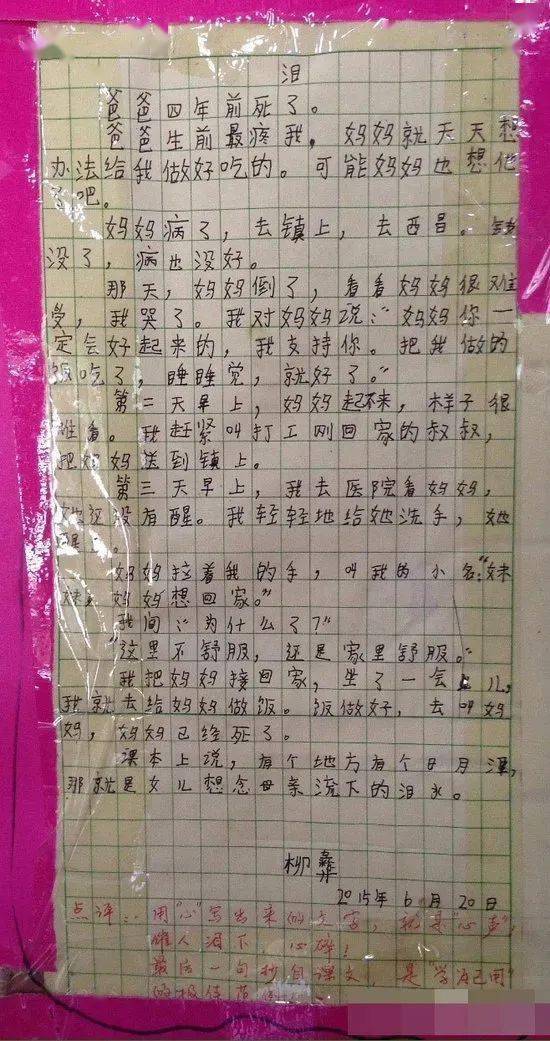 泪
爸爸四年前死了。
爸爸生前最疼我，妈妈就天天想
办法给我做好吃的。可能妈妈也想他
了吧。
妈妈病了，去镇上，去西昌。钱
没了，病也没好。
那天，妈妈倒了，看看妈妈很难
受，我哭了。我对妈妈说：“妈妈你一
定会好起来的，我支持你。把我做的
饭吃了，睡睡觉，就好了。”
第二天早上，妈妈起不来，样子很
难看。我赶紧叫打工刚回家的叔叔，
把妈妈送到镇上。
第三天早上，我去医院看妈妈，
她还没有醒。我轻轻地给她洗手，她
醒了。
妈妈拉着我的手，叫我的小名：“妹
妹，妈妈想回家。”
我问：“为什么了？”
“这里不舒服，还是家里舒服。”
我把妈妈接回家，坐了一会儿，
我就去给妈妈做饭。饭做好，去叫妈
妈，妈妈已经死了。
课本上说，有个地方有个日月潭，
那就是女儿想念母亲流下的泪水。
柳彝
2015年6月20日
点评：用“心”写出来的文字，就是“心声”，
催人泪下，心碎！
最后一句抄自课文，是“学为己用”
的极佳范